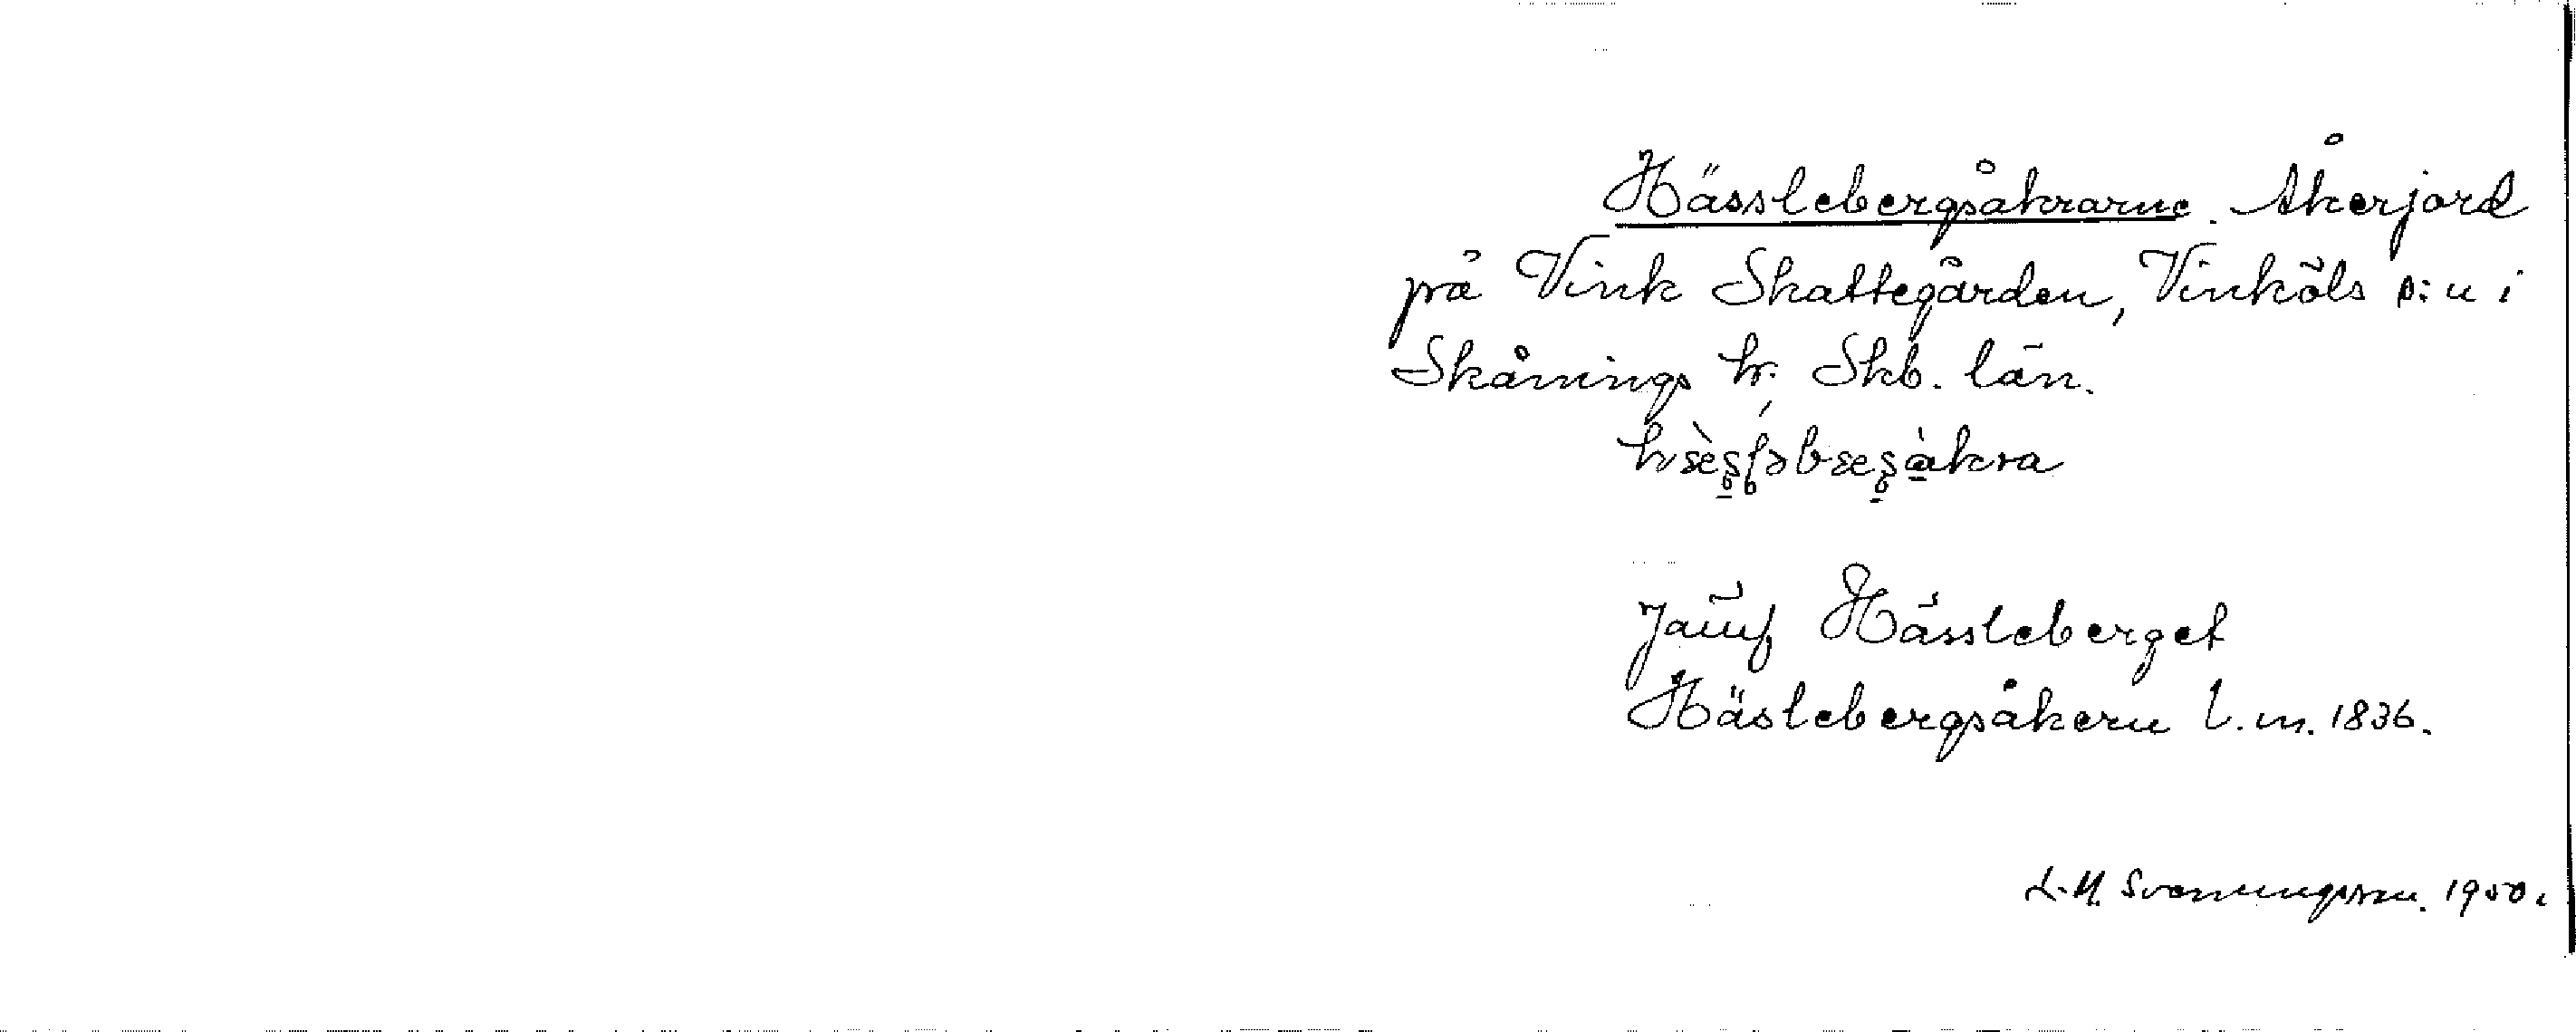 Hässlebergsåkrarne. Åkerjord
på Vink Skattegården, Vinköls s:n i
Skånings hr. Skb. län.
Jämf Hässleberget
Häslebergsåkern l.m. 1836.
L.M. Svenungsson. 1950.